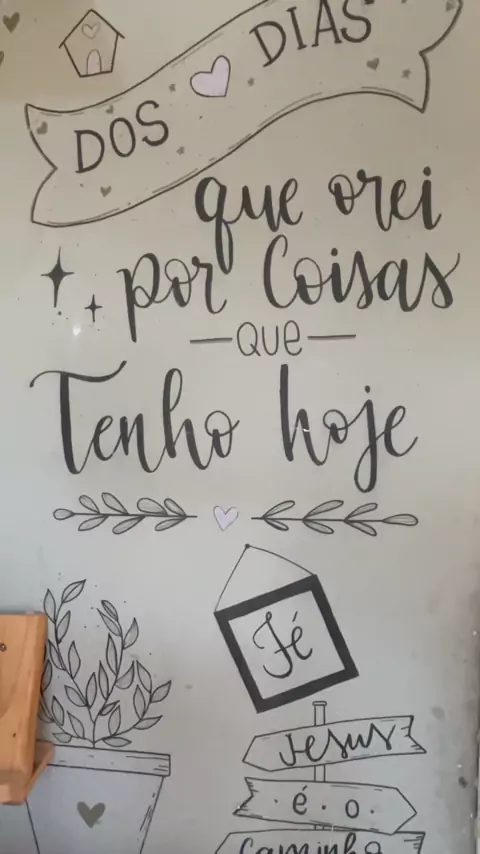 DOS DIAS
que orei
por Coisas
QUE
Tenho hoje
Fé
Jesus
é o
Caminho